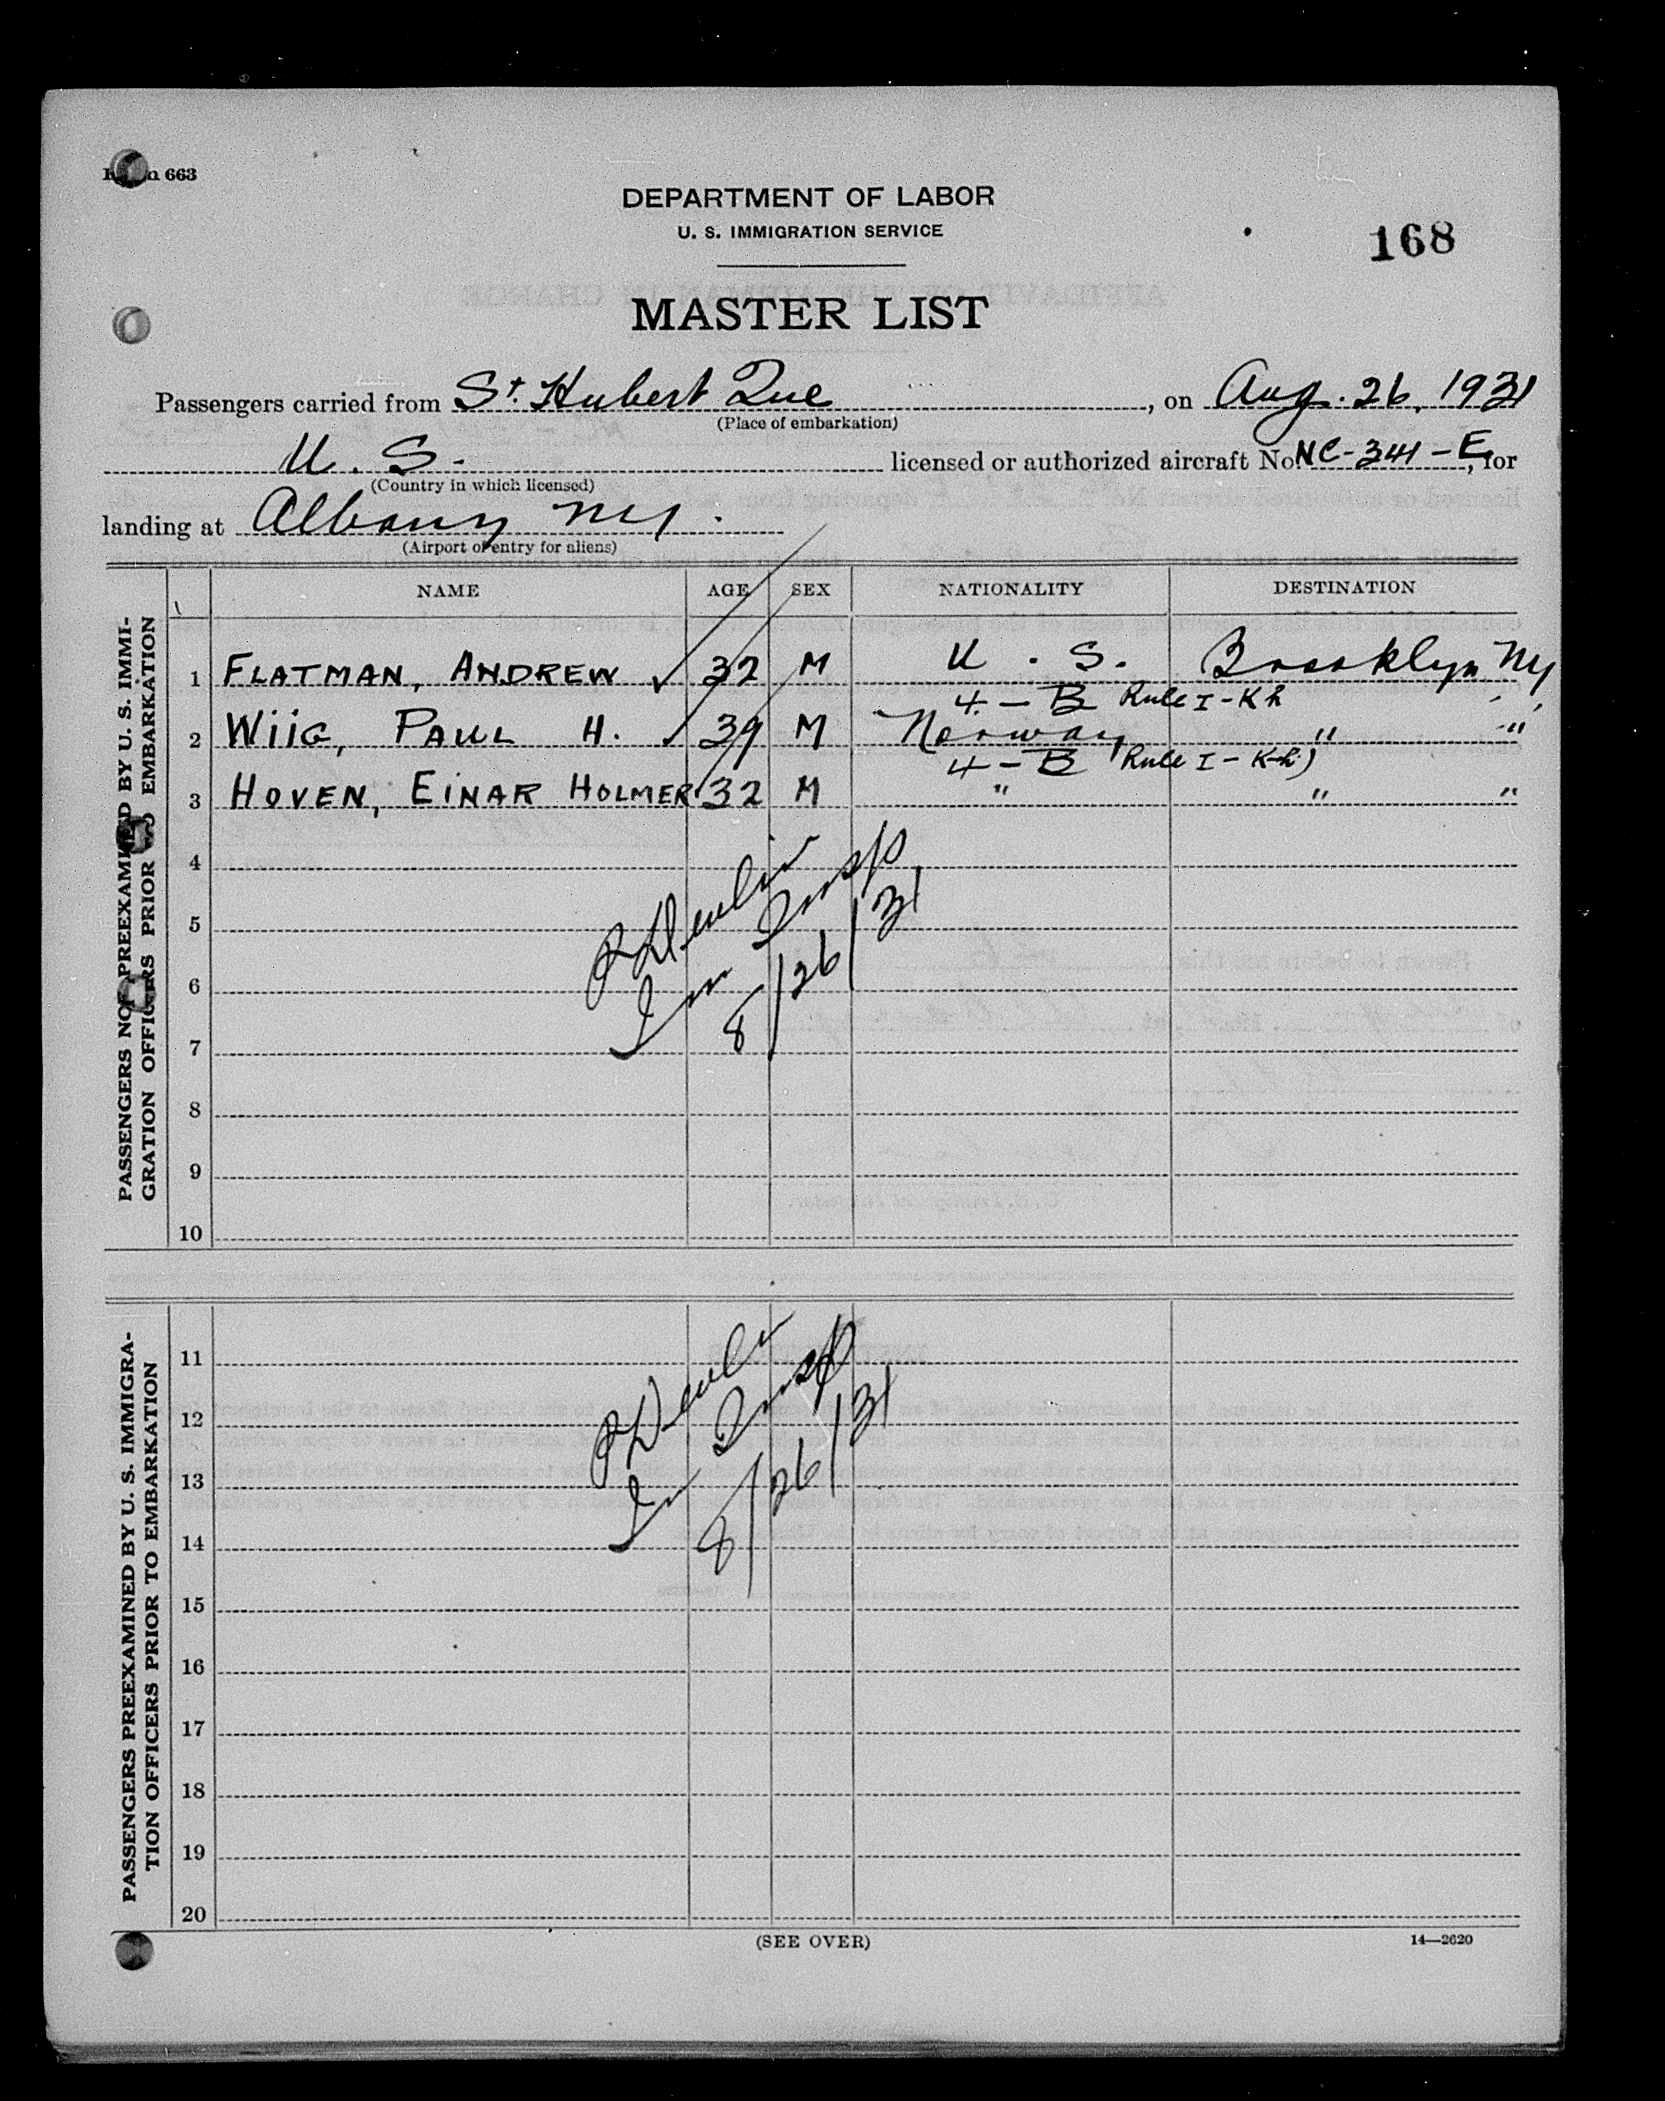 Form 663
DEPARTMENT OF LABOR
U. S. IMMIGRATION SERVICE
168
MASTER LIST
Passengers carried from St. Hubert Que, on Aug. 26, 1931
(Place of embarkation)
U. S. licensed or authorized aircraft No. NC-341-E, for
(Country in which licensed)
landing at Albany NY.
(Airport of entry for aliens)
NAME AGE SEX NATIONALITY DESTINATION
PASSENGERS NOT PREEXAMINED BY U. S. IMMI-
GRATION OFFICERS PRIOR TO EMBARKATION
1 FLATMAN, ANDREW ✓ 32 M U. S. Brooklyn NY
4-B Rule I-K h
2 WIIG, PAUL H. ✓ 39 M Norway " "
4-B Rule I-K-h)
3 HOVEN, EINAR HOLMER 32 M " " "
4
5
6
7
8
9
10
Devlin
Im Insp
8/26/31
PASSENGERS PREEXAMINED BY U. S. IMMIGRA-
TION OFFICERS PRIOR TO EMBARKATION
11
12
13
14
15
16
17
18
19
20
Devlin
Im Insp
8/26/31
(SEE OVER)
14—2620